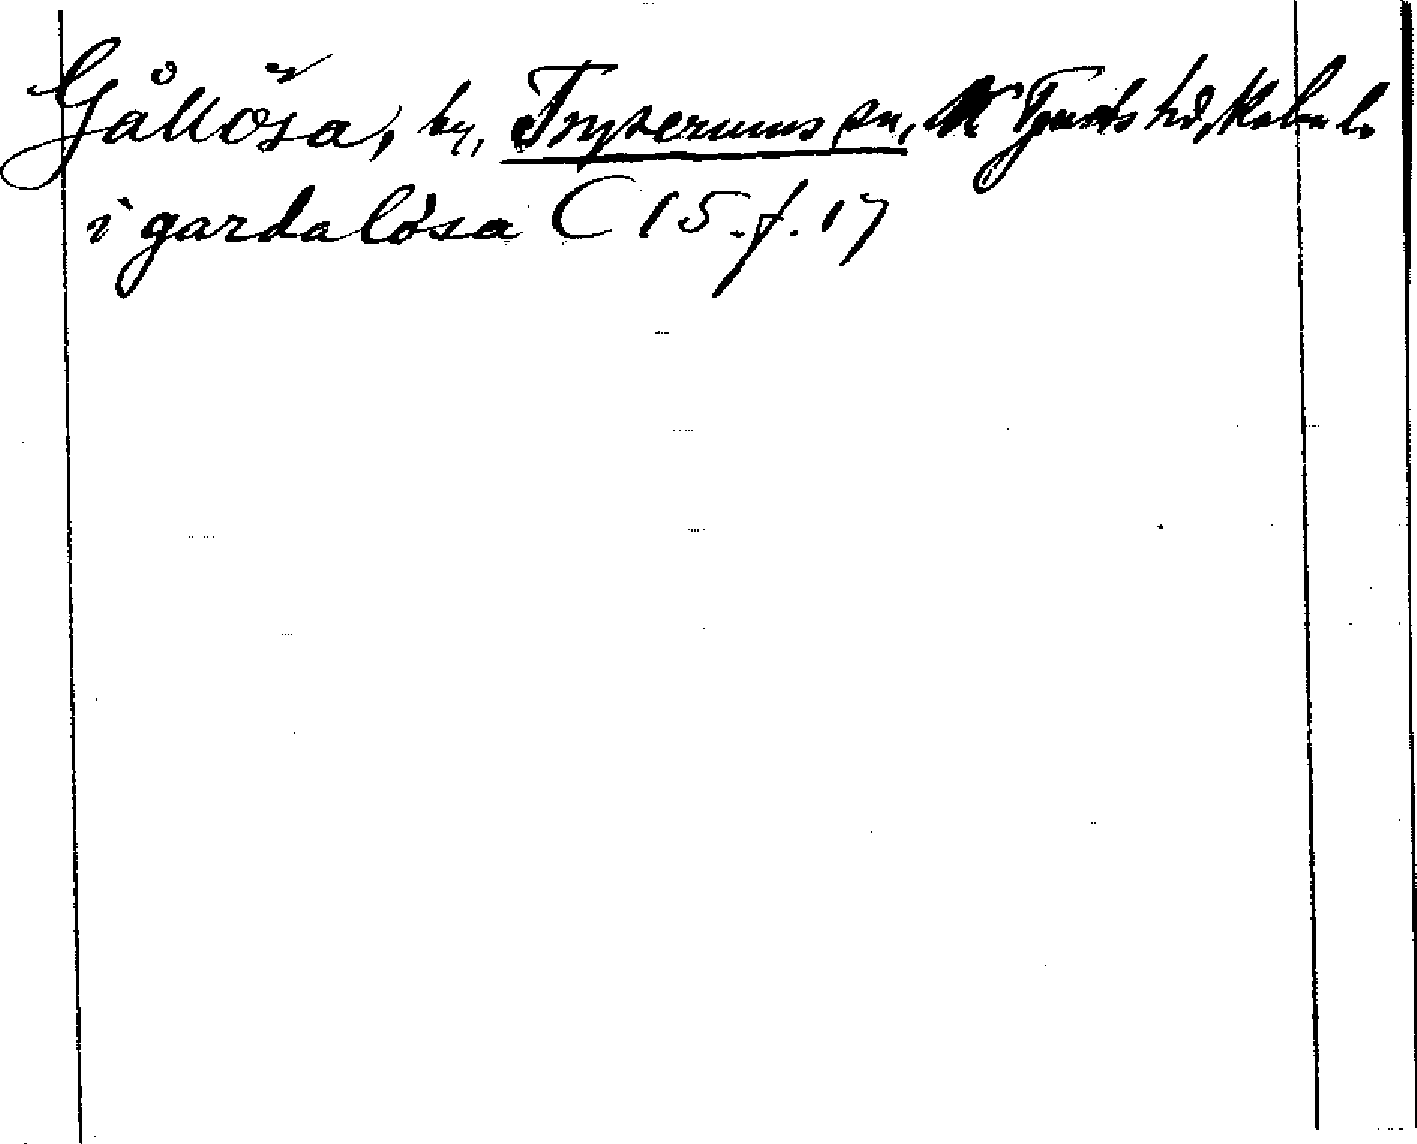 Gållösa, by, Tryserums sn, Tjusts hd, Kalm l.
i gardalösa C 15 f. 17